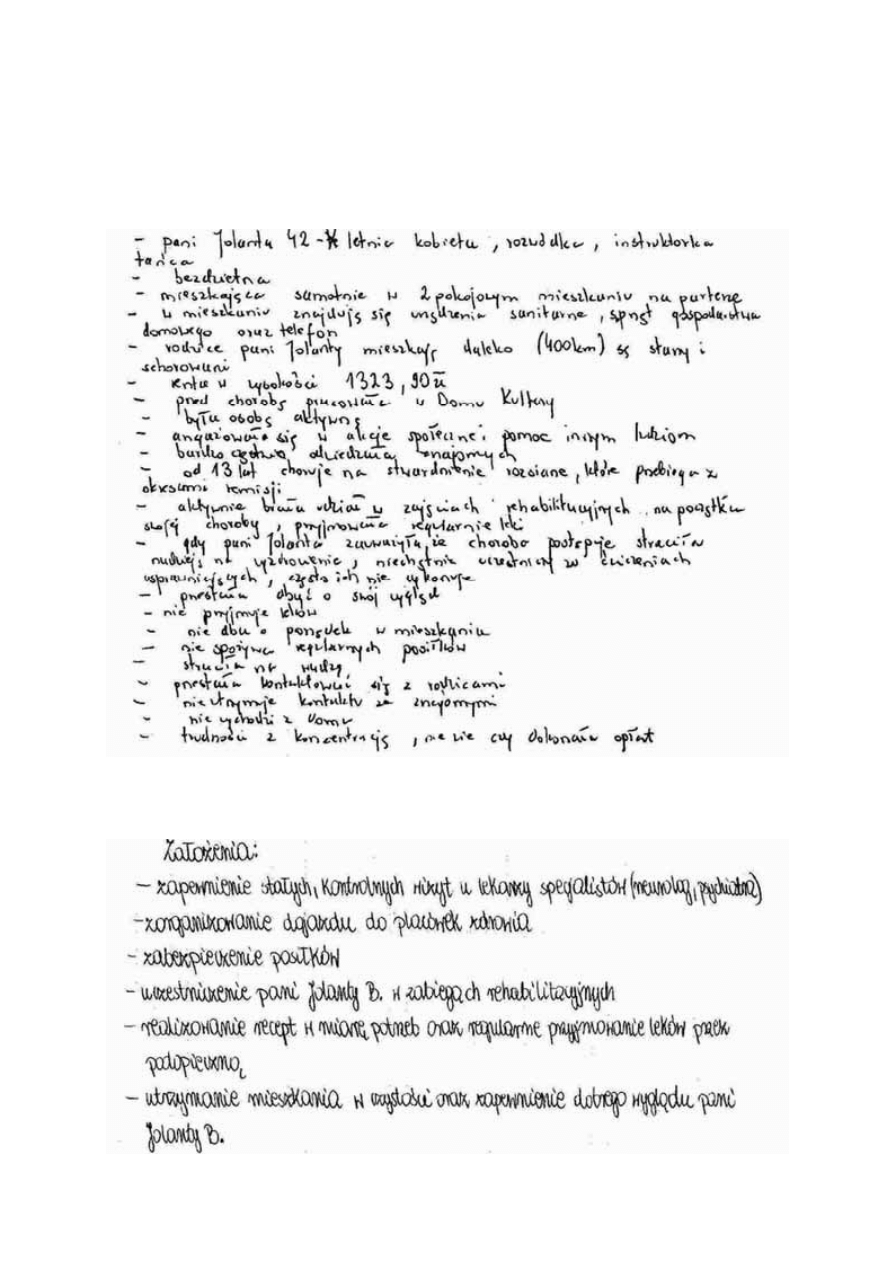 - pani Jolanta 42 - letnia kobieta, rozwódka, instruktorka
tańca
- bezdzietna
- mieszkająca samotnie w 2 pokojowym mieszkaniu na parterze
- w mieszkaniu znajdują się urządzenia sanitarne, sprzęt gospodarstwa
domowego oraz telefon
- rodzice pani Jolanty mieszkają daleko (400km) są starzy i
schorowani
- renta w wysokości 1323,90 zł
- przed chorobą pracowała w Domu Kultury
- była osobą aktywną
- angażowała się w akcje społeczne i pomoc innym ludziom
- bardzo często odwiedzała znajomych
- od 13 lat choruje na stwardnienie rozsiane, które przebiega z
okresami remisji
- aktywnie brała udział w zajęciach rehabilitacyjnych na początku
swojej choroby, przyjmowała regularnie leki
- gdy pani Jolanta zauważyła, że choroba postępuje straciła
nadzieję na wyzdrowienie, niechętnie uczestniczy w ćwiczeniach
usprawniających, często ich nie wykonuje
- przestała dbać o swój wygląd
- nie przyjmuje leków
- nie dba o porządek w mieszkaniu
- nie spożywa regularnych posiłków
- straciła na wadze
- przestała kontaktować się z rodzicami
- nie utrzymuje kontaktu ze znajomymi
- nie wychodzi z domu
- trudności z koncentracją, nie wie czy dokonała opłat
Założenia:
- zapewnienie stałych, kontrolnych wizyt u lekarzy specjalistów (neurolog, psychiatra)
- zorganizowanie dojazdu do placówek zdrowia
- zabezpieczenie posiłków
- uczestniczenie pani Jolanty B. w zabiegach rehabilitacyjnych
- realizowanie recept w miarę potrzeb oraz regularne przyjmowanie leków przez
podopieczną
- utrzymanie mieszkania w czystości oraz zapewnienie dobrego wyglądu pani
Jolanty B.